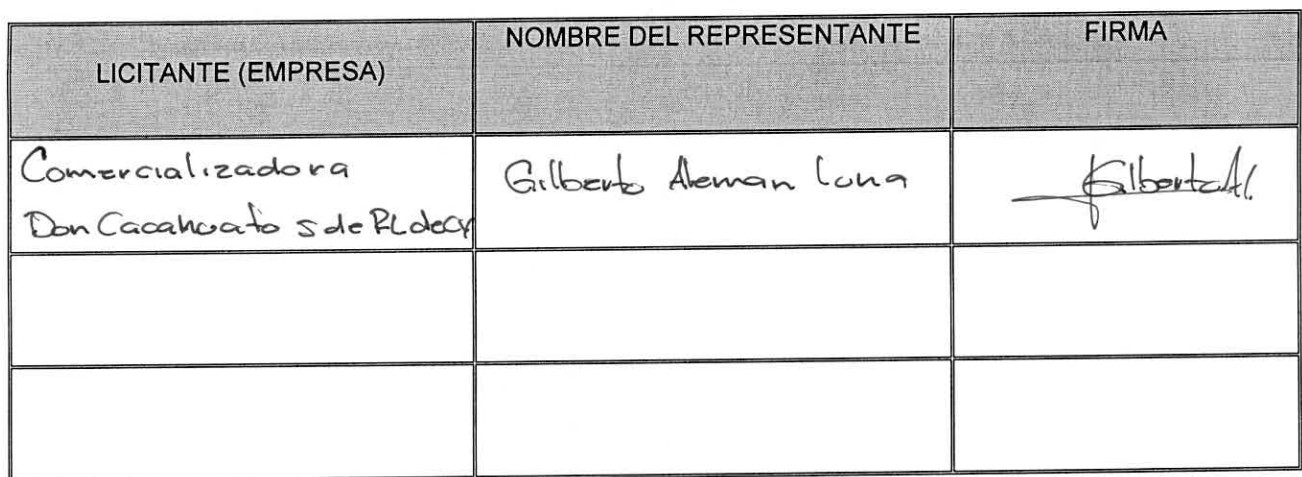 LICITANTE (EMPRESA)
NOMBRE DEL REPRESENTANTE
FIRMA
Comercializadora
Don Cacahuato S de RL de CV
Gilberto Aleman Luna
GilbertoAl.